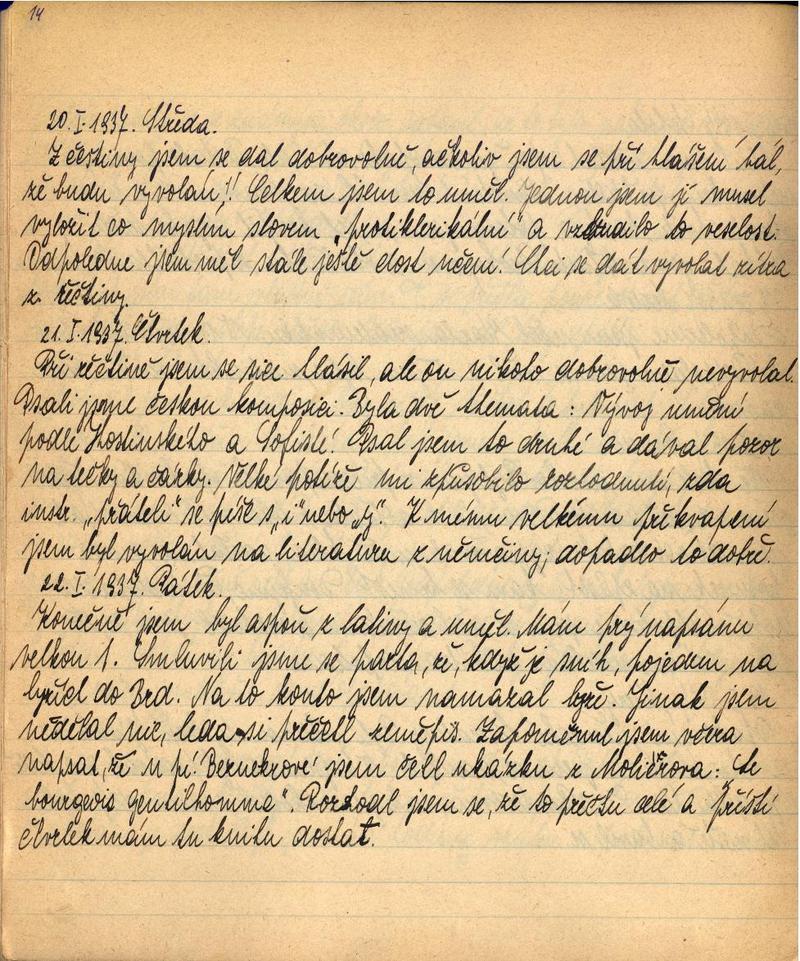 14
20. I. 1937. Středa.
Z češtiny jsem se dal dobrovolně, ačkoliv jsem se při hlášení bál,
že budu vyvolán!! Celkem jsem to uměl. Jednou jsem jí musel
vyložit co myslím slovem „protiklerikální“ a vzbudilo to veselost.
Odpoledne jsem měl stále ještě dost učení! Chci se dát vyvolat zítra
z řečtiny.
21. I. 1937. Čtvrtek.
Při řečtině jsem se sice hlásil, ale on nikoho dobrovolně nevyvolal.
Psali jsme českou komposici. Byla dvě themata: Vývoj umění
podle Hostinského a Sofisté! Psal jsem to druhé a dával pozor
na tečky a čárky. Velké potíže mi způsobilo rozhodnutí, zda
instr. „přáteli“ se píše s „i“ nebo „y“. K mému velkému překvapení
jsem byl vyvolán na literaturu z němčiny; dopadlo to dobře.
22. I. 1937. Pátek.
Konečně jsem byl aspoň z latiny a uměl. Mám prý napsánu
velkou 1. Smluvili jsme se parta, že, když je sníh, pojedem na
lyžích do Brd. Na to konto jsem namazal lyže. Jinak jsem
nedělal nic, leda si přečetl zeměpis. Zapomněl jsem včera
napsat, že u pí. Bernekrové jsem četl ukázku z Moliérova: „Le
bourgeois gentilhomme“. Rozhodl jsem se, že to přečtu celé a příští
čtvrtek mám tu knihu dostat.